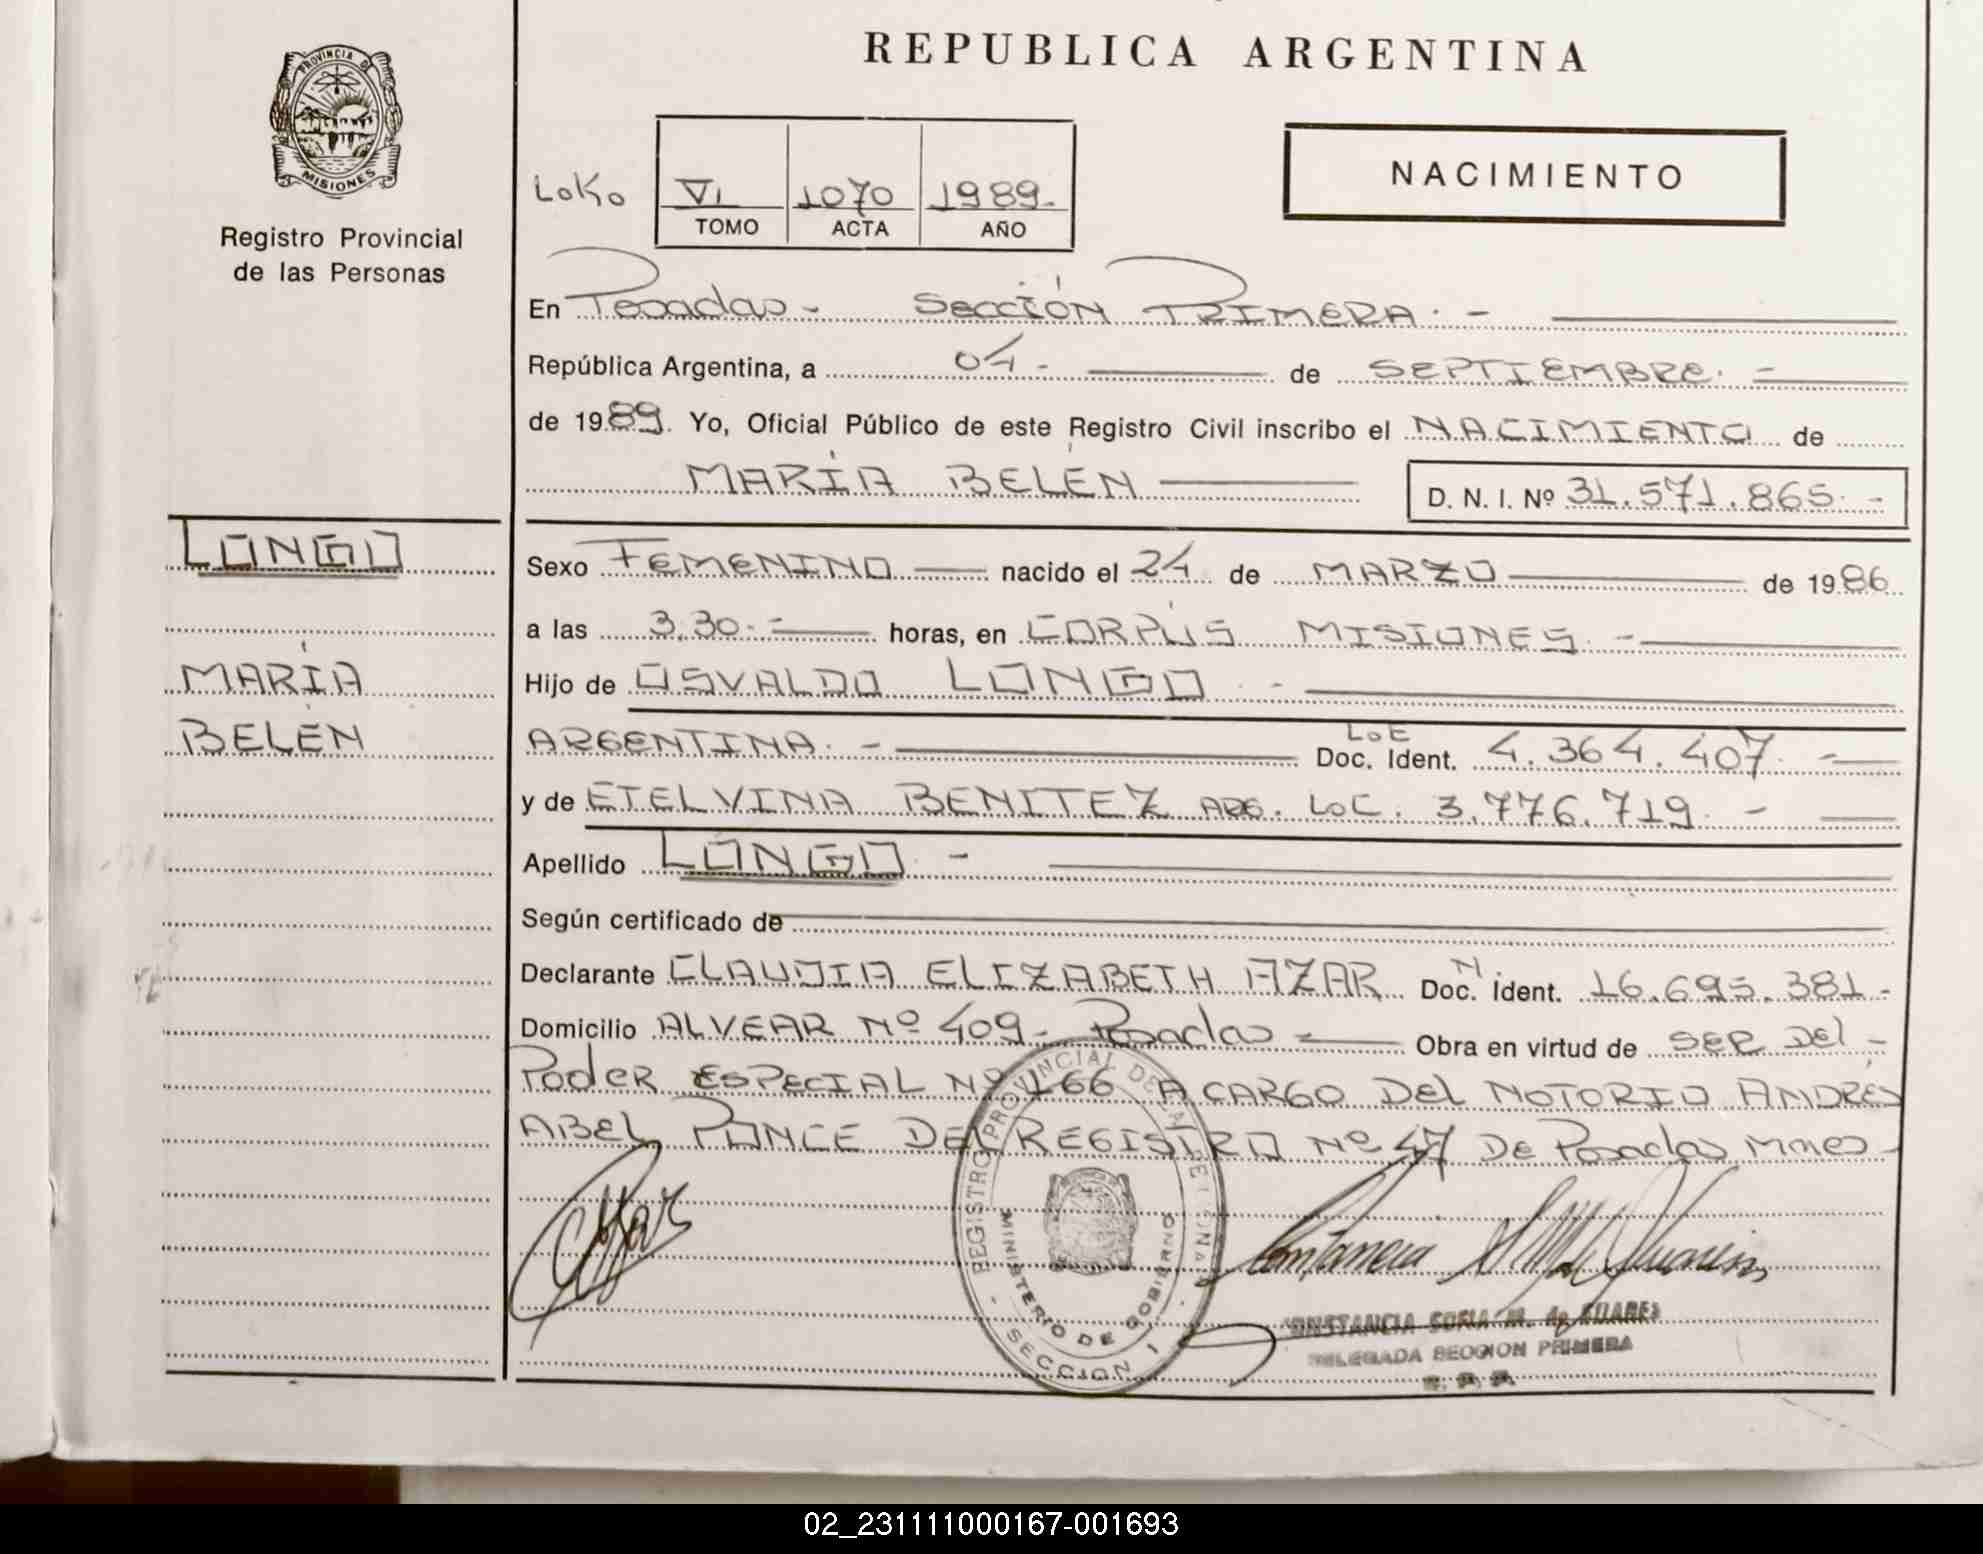 REPUBLICA ARGENTINA
PROVINCIA DE
MISIONES
Registro Provincial
de las Personas
VI 1070 1989.-
TOMO ACTA AÑO
NACIMIENTO
En Posadas - Sección PRIMERA. -
República Argentina, a 04- de SEPTIEMBRE. -
de 1989. Yo, Oficial Público de este Registro Civil inscribo el NACIMIENTO de
MARÍA BELÉN
D. N. I. Nº 31.571.865.-
LONGO
MARÍA
BELÉN
Sexo FEMENINO nacido el 24 de MARZO de 1986
a las 3,30.- horas, en CORPUS MISIONES.-
Hijo de OSVALDO LONGO.-
ARGENTINA.- Doc. Ident. LoE 4.364.407.-
y de ETELVINA BENITEZ ARG. LoC. 3.776.719.-
Apellido LONGO.-
Según certificado de
Declarante CLAUDIA ELIZABETH AZAR Doc. N. Ident. 16.695.381.-
Domicilio ALVEAR Nº 409- Posadas - Obra en virtud de SER DEL -
PODER ESPECIAL Nº 166 A CARGO DEL NOTORIO ANDRÉS
ABEL PONCE DEL REGISTRO Nº 47 DE Posadas Mnes -
REGISTRO PROVINCIAL DE LAS PERSONAS
MINISTERIO DE GOBIERNO
- SECCION 1 -
CONSTANCIA SOFIA M. de SUARES
DELEGADA SECCION PRIMERA
02_231111000167-001693